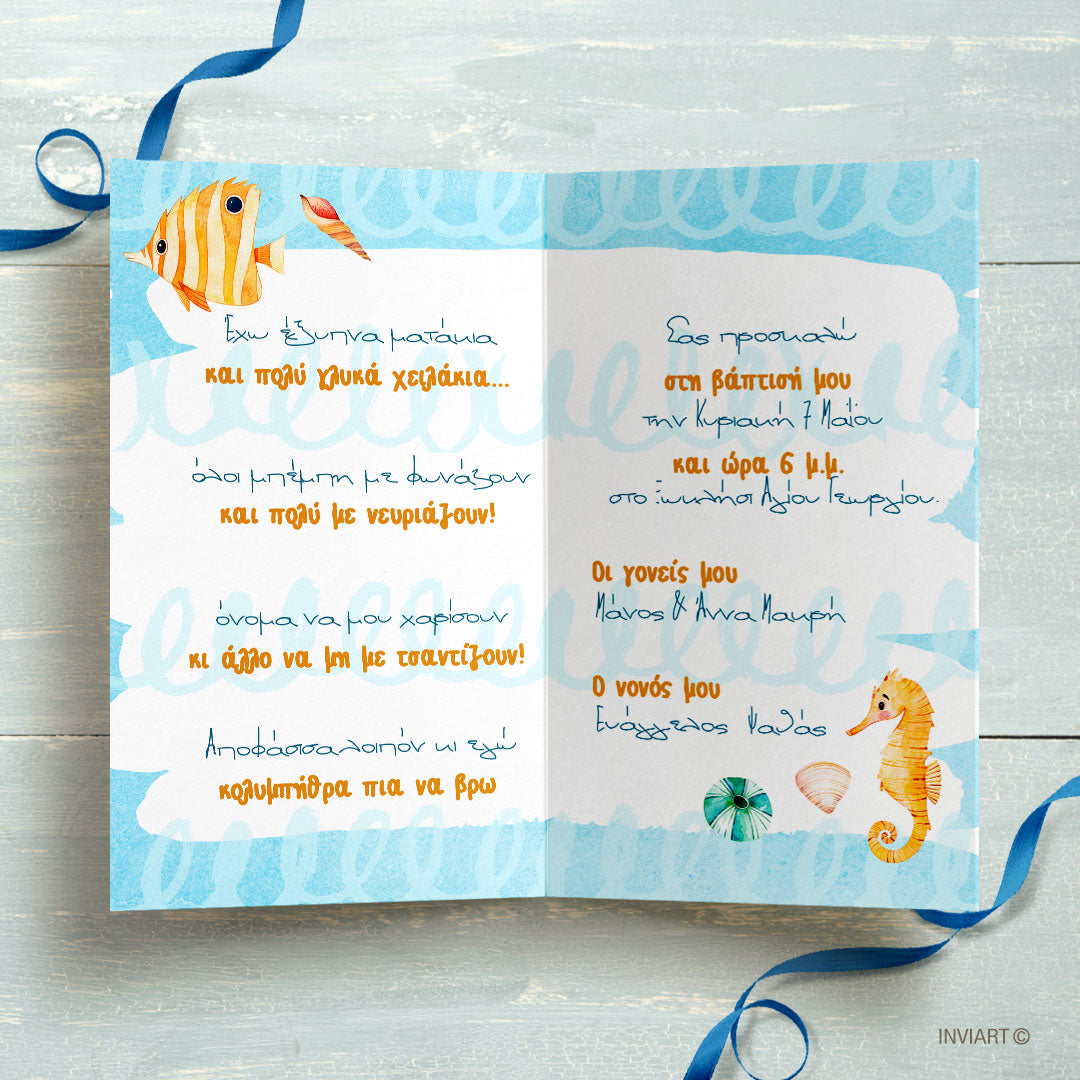 Έχω έξυπνα ματάκια
και πολύ γλυκά χειλάκια...
όλοι μπέμπη με φωνάζουν
και πολύ με νευριάζουν!
όνομα να μου χαρίσουν
κι άλλο να μη με τσαντίζουν!
Αποφάσισα λοιπόν κι εγώ
κολυμπήθρα πια να βρω
Σας προσκαλώ
στη βάπτισή μου
την Κυριακή 7 Μαΐου
και ώρα 6 μ.μ.
στο Ξωκλήσι Αγίου Γεωργίου.
Οι γονείς μου
Μάνος & Άννα Μακρή
Ο νονός μου
Ευάγγελος Ψαθάς
INVIART ©